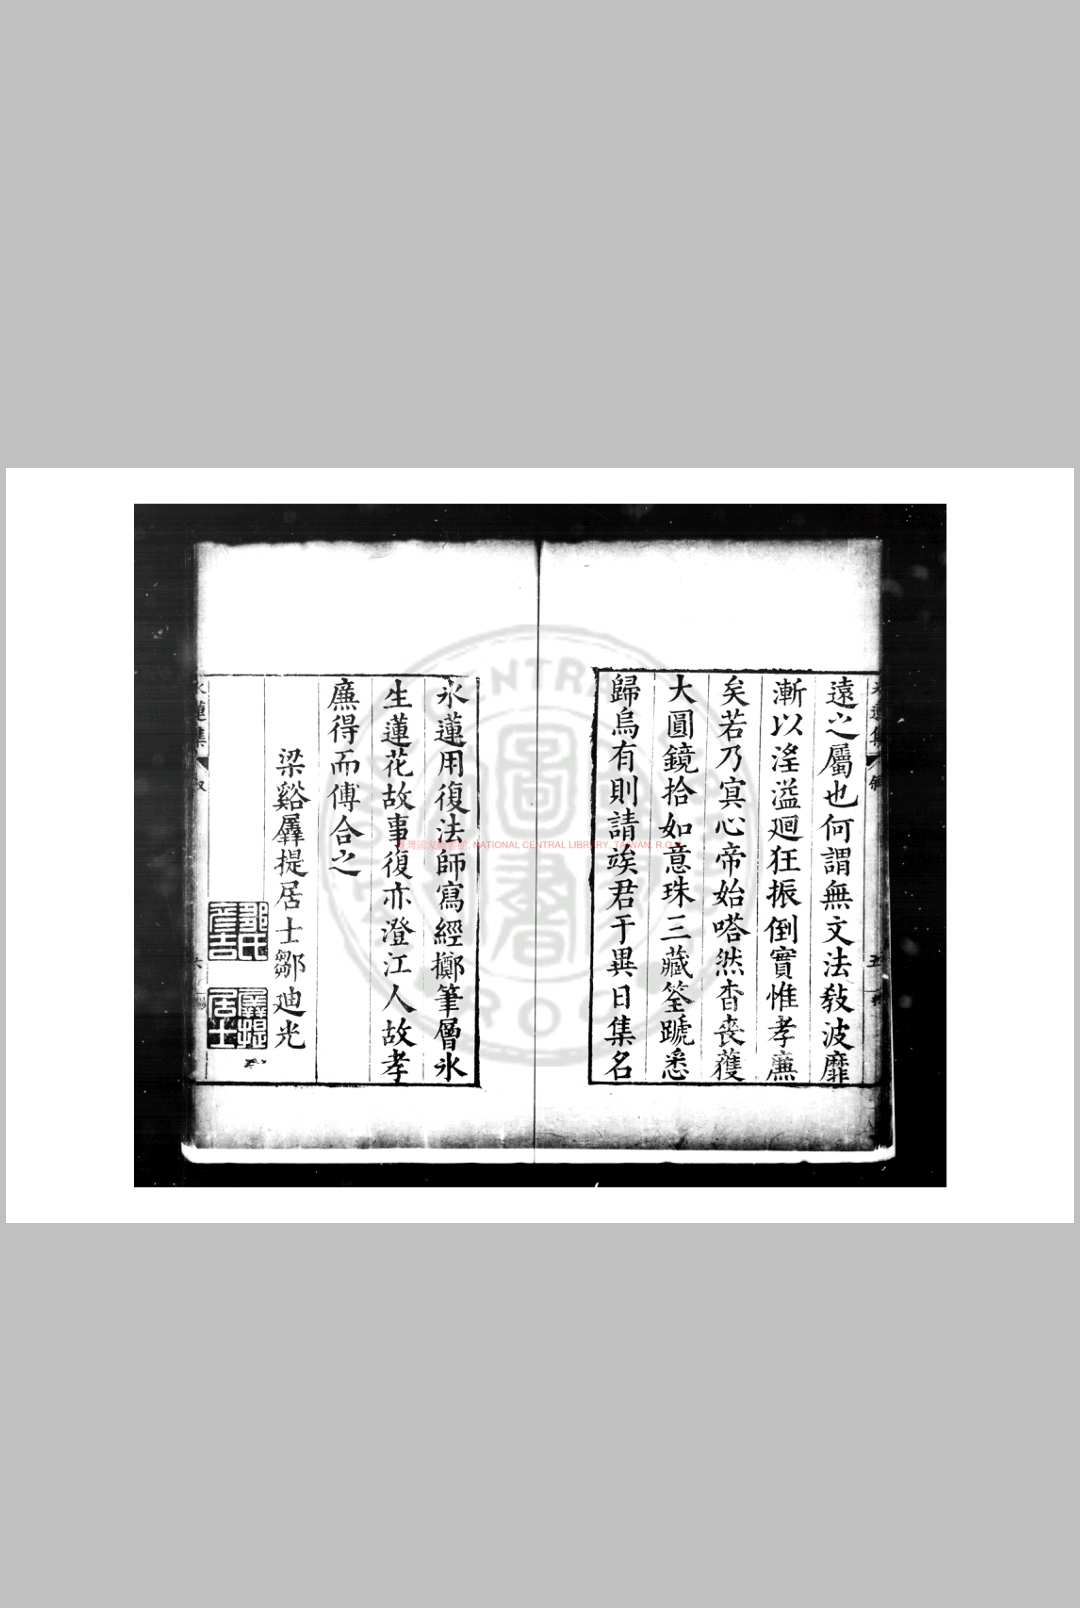 遠之屬也何謂無文法敎波靡
漸以滛溢廻狂振倒實惟孝廉
矣若乃冥心帝始嗒然杳喪蒦
大圓鏡拾如意珠三藏筌蹏悉
歸烏有則請竢君于異日集名
氷蓮用復法師寫經擲筆層氷
生蓮花故事復亦澄江人故孝
廉得而傅合之
梁谿羼提居士鄒迪光
鄒氏彥吉
羼提居士
氷蓮集
NATIONAL CENTRAL LIBRARY, TAIWAN, R.O.C.
圖書